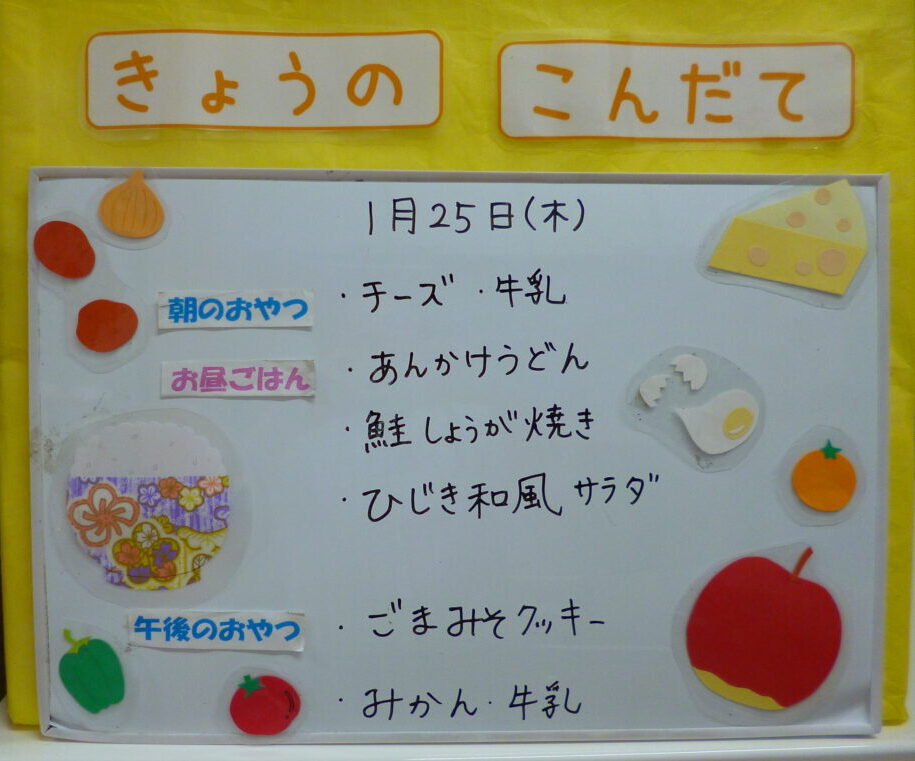 きょうの こんだて
1月25日(木)
朝のおやつ ・チーズ ・牛乳
お昼ごはん ・あんかけうどん
・鮭しょうが焼き
・ひじき和風サラダ
午後のおやつ ・ごまみそクッキー
・みかん・牛乳